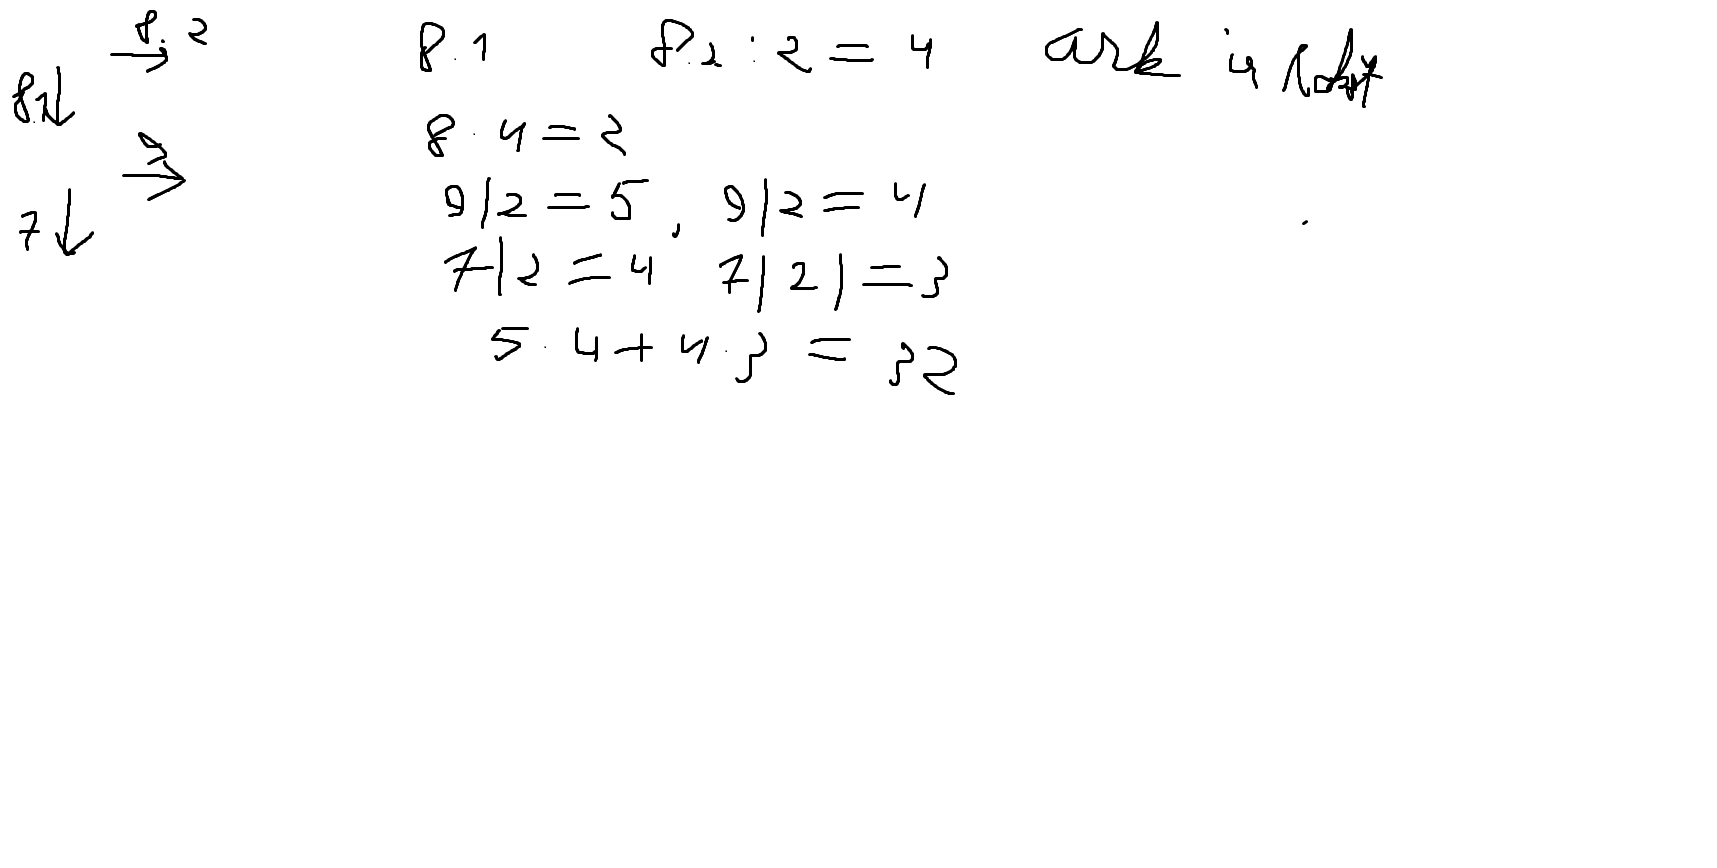 8. 2
8.1
9
7
8.1 8.2 : 2 = 4 ark
8 · 4 = 2
9 | 2 = 5, 9 | 2 = 4
7 | 2 = 4 7 | 2 | = 3
5 · 4 + 4 · 3 = 32